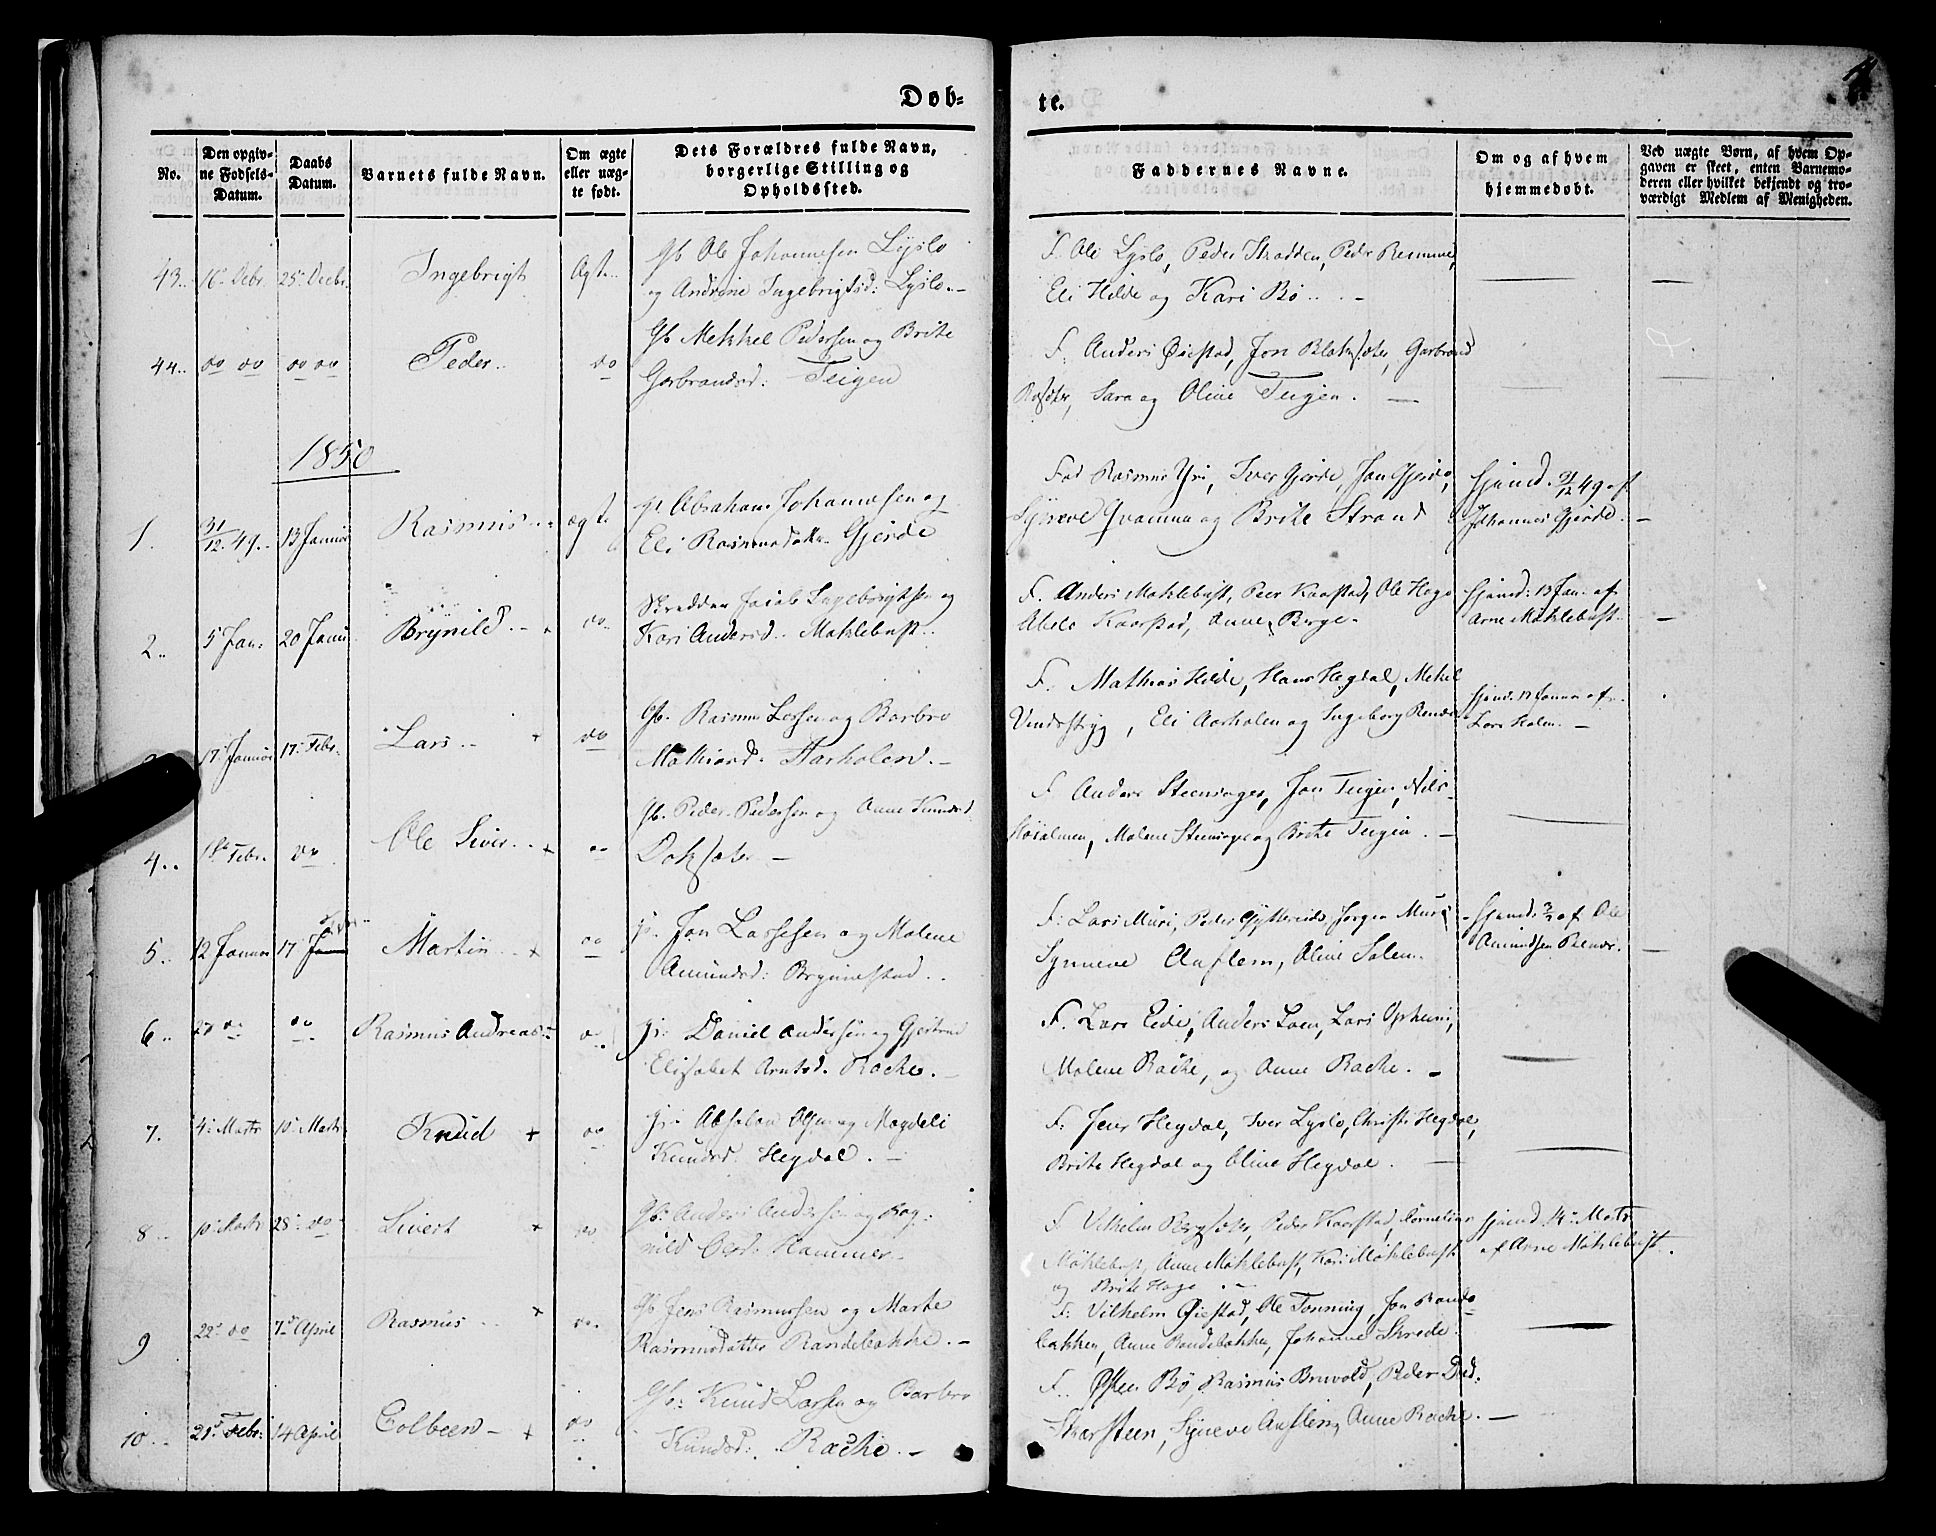 Døb-
te.
No.
Den opgiv-
ne Fødsels-
Datum.
Daabs
Datum.
Barnets fulde Navn.
Om ægte
eller uæg-
te født.
Dets Forældres fulde Navn,
borgerlige Stilling og
Opholdssted.
Faddernes Navne.
Om og af hvem
hjemmedøbt.
Ved uægte Børn, af hvem Op-
gaven er skeet, enten Barnemo-
deren eller hvilket bekjendt og tro-
værdigt Medlem af Menigheden.
43.. 16. Debr. 25. Decbr. Ingebrigt Ægte.. Gb Ole Johannesen Lyslo
og Andrine Ingebrigtsd: Lyslo.-
F. Ole Lyslo, Peder Skradden, Peder
Eli Hilde og Kari Bø...-
44.. do do do do Peder.. do Gb Mekkel Pedersen og Brite
Garbrandsd: Teigen
F: Anders Øiestad, Jon Blaksæter, Garbrand
Sara og Oline Teigen. —
1850
1. 31/12. 49.. 13 Januar Rasmus... ægte p. Abraham Johannesen og
Eli Rasmusdatter Gjerde
Fad Rasmus Yri, Iver Gjerde, Jon Gjerde,
Synneve Qvamme og Brite Strand
hjemd. 31/12 49 af
Johannes Gjerde.
2.. 5 Jan: 20 Janu Brynild.- + do.. Skredder Jacob Ingebrigtsen og
Kari Andersd.. Møklebust..
F. Anders Møklebust, Peer Kaarstad, Ole Hage
Kaarstad, Anne Berge.
hjemd: 13 Jan. af
Arne Møklebust..
17. Januar 17. Febr. Lars.. + do Gb. Rasmus Larsen og Barbro
Mathiasd. Aarholen.-
F. Mathias Hilde, Hans Hegdal, Mekel
Vindestryg, Eli Aarholen og Ingeborg
hjemd. 17 Januar af
Lars Holen.-
4.. Febr. do Ole Siver.. + do Gb. Peder Pedersen og Anne Knudsd
Doksæter -
F Anders Steensager, Jon Teigen, Nils
Malene og Brite Teigen. -
5.. 12 Januar 17 Febr. Martin.. + do p. Jon Lassesen og Malene
Amundsd: Brynnestad..
F: Lars Muri, Peder Gytterindo, Jørgen Muri
Synneve Auflem, Oline Solem.
hjemd: af Ole
Amundsen
6.. 27 do do Rasmus Andreas.. do p: Daniel Andersen og Gjertrud
Elisabet Arntsd. Rache.-
F. Lars Eide, Anders Loen, Lars Opheim,
Malene Rache, og Anne Rache. -
7. 4: Marts 10. Marts Knud + do p: Absalon Olsen og Magdeli
Knudsd: Hegdal. -
F: Jens Hegdal, Iver Lyslo, Christi Hegdal,
Brite Hegdal og Oline Hegdal. —
8.. 10 Marts 28. do Sivert + do Gb: Anders Andersen og Rag-
nild Hammer-
F. Vilhelm Bergsæter, Peder Kaarstad, Cornelius
Møklebust, Anne Møklebust, Kari Møklebust
og Brite Hage.-
hjemd 14. Marts
af Arne Møklebust.
9 22. do 7d April Rasmus.. + do. Gb Jens Rasmussen og Marte
Rasmusdatter Randebakke.-
F: Vilhelm Øiestad, Ole Tonning, Jon Rande-
bakken, Anne Randebakken, Johanne Skrede.
10.. 21d Febr: 14 April Colbeen- + do Gb: Knud Larsen og Barbro
Knudsd:. Rache.-
F.. Østen Bø, Rasmus Bruvold, Peder
Skarsteen, Synneve Auflem, Anne Rache.-